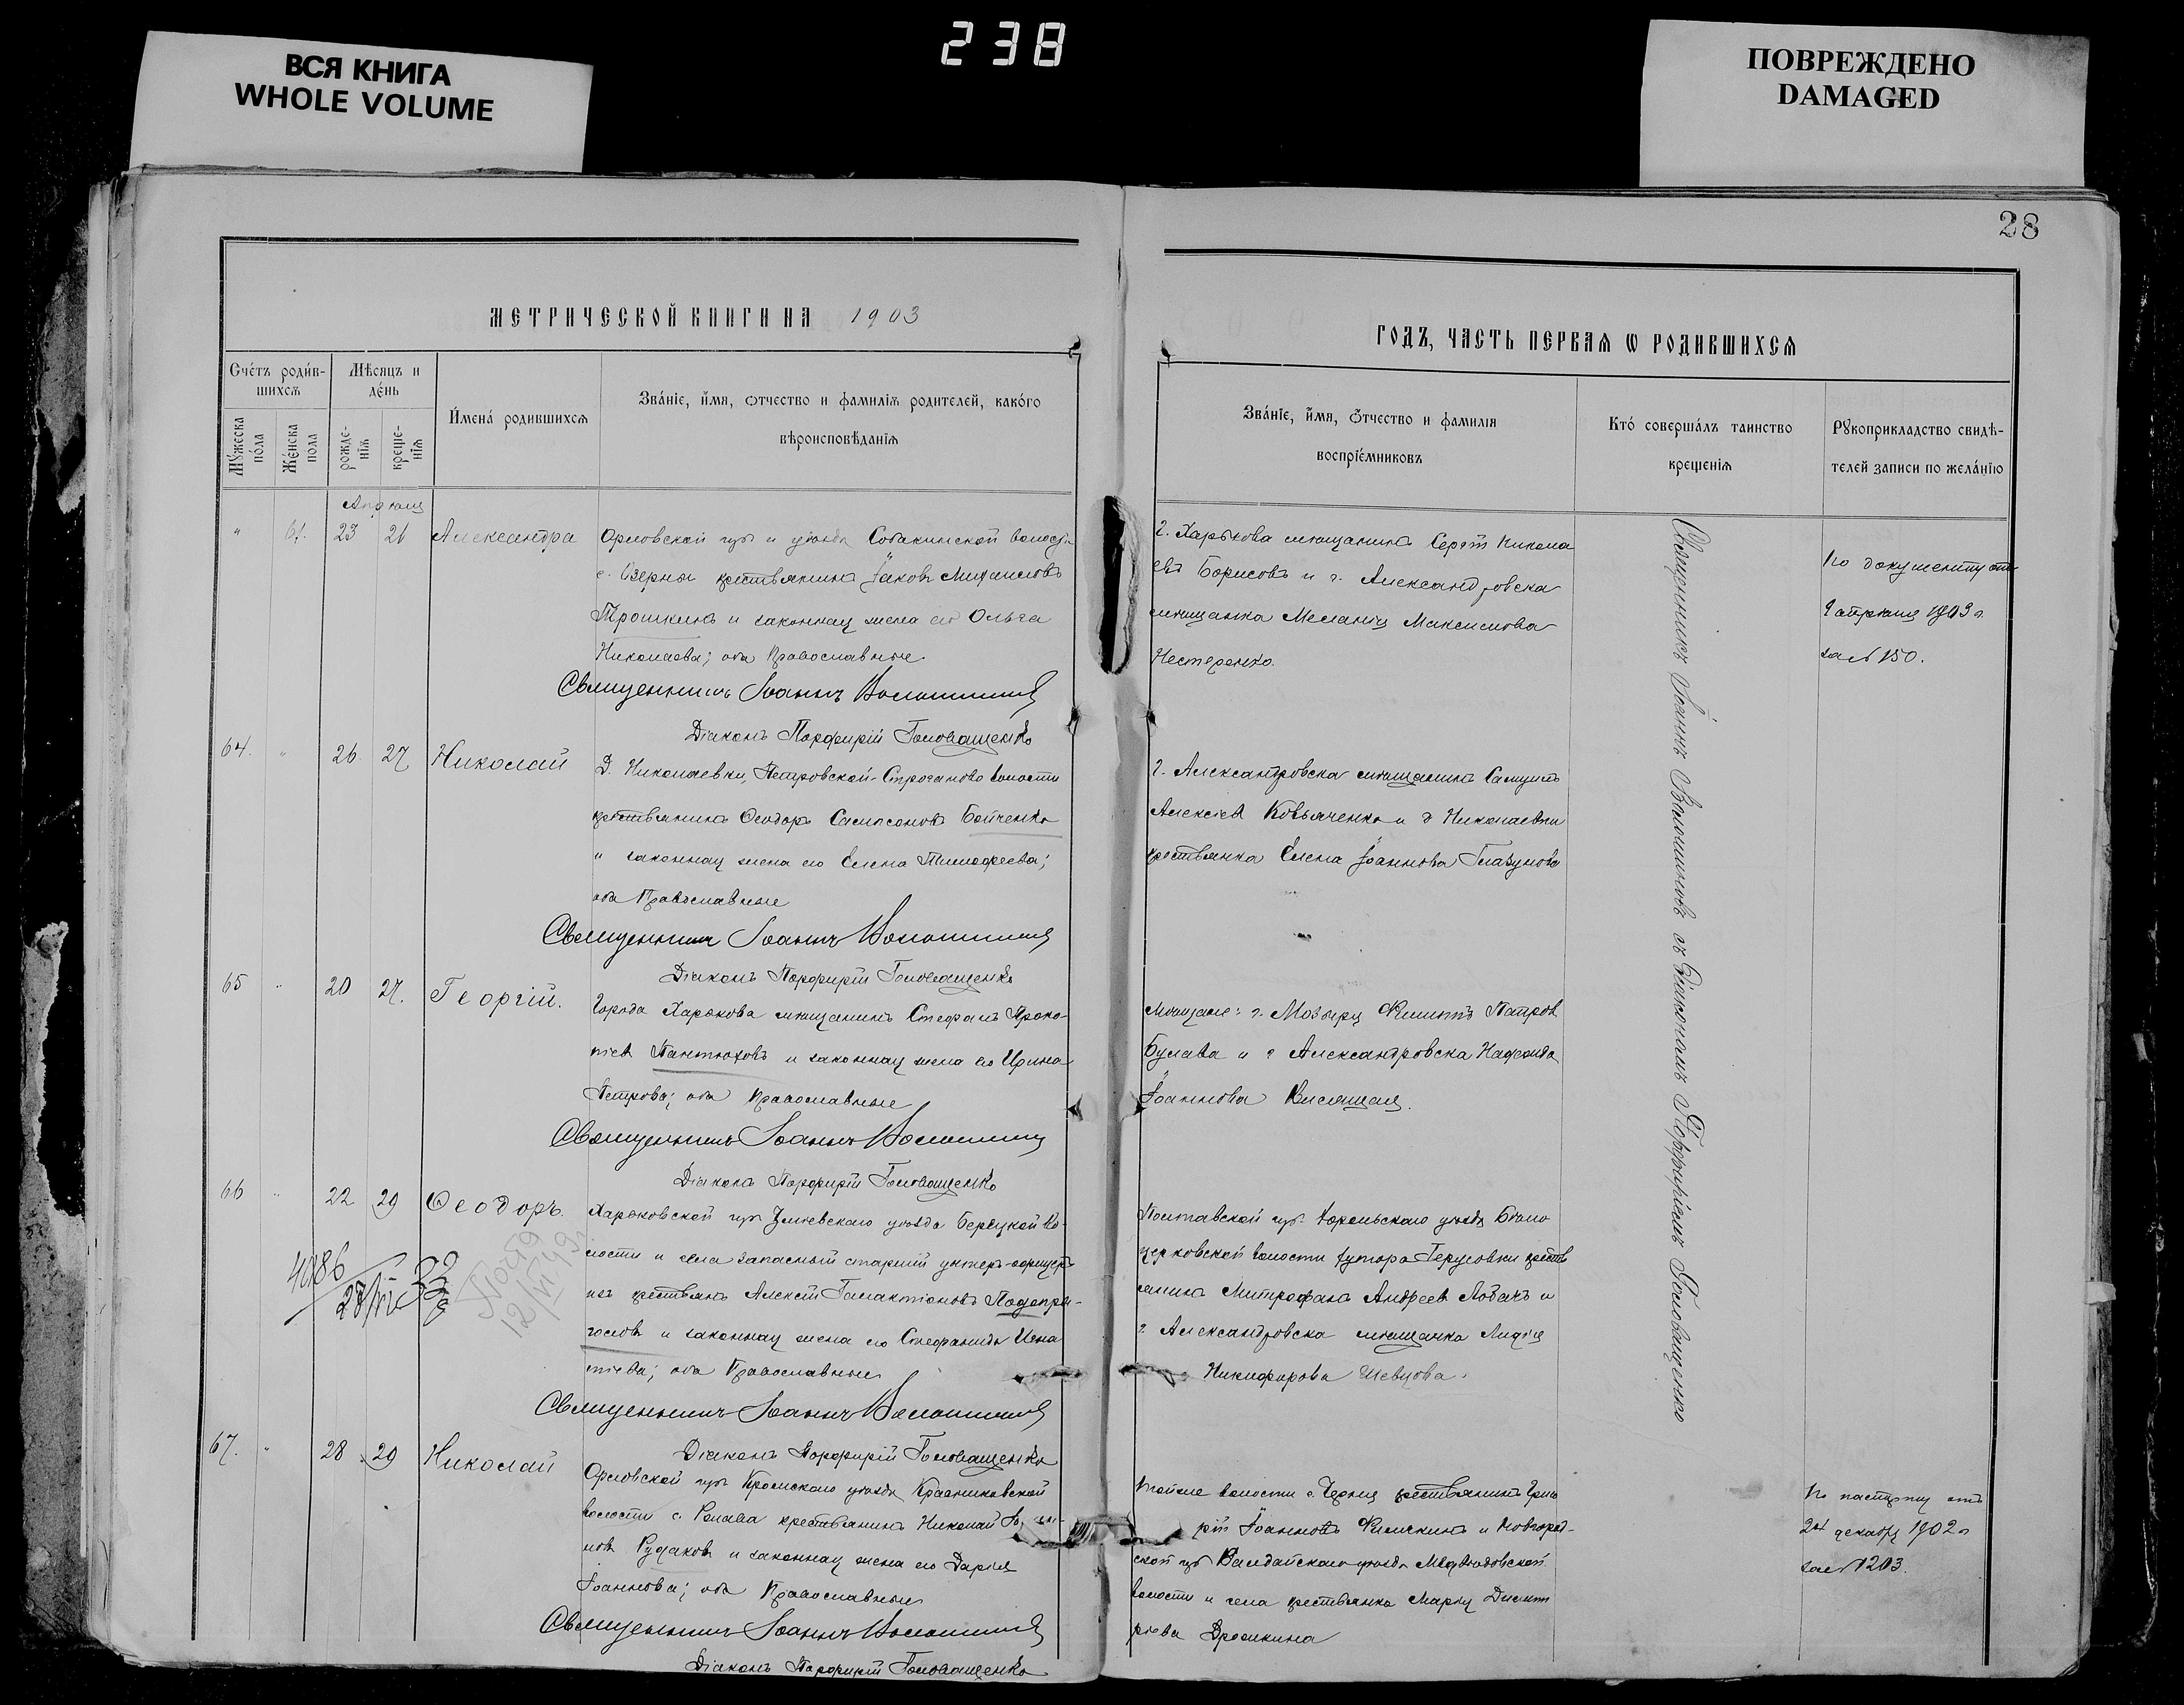 238
ВСЯ КНИГА
WHOLE VOLUME
ПОВРЕЖДЕНО
DAMAGED
28
МЕТРИЧЕСКОЙ КНИГИ НА 1903
ГОДЪ, ЧАСТЬ ПЕРВАѦ Ѡ РОДИВШИХСѦ
Счéтъ роди́в-
шихсѧ
Мѣсяцъ и
дéнь
Мꙋ́жеска
по́ла
Жéнска
пола
рожде-
ніѧ
креще-
ніѧ
И҆мена́ родившихсѧ
Зва́ніе, и҆́мя, ѻтчество и фамиліѧ родителей, како́го
вѣроисповѣданіѧ
Зва́ніе, и҆́мя, Ѻтчество и фамиліѧ
воспріéмниковъ
Кто́ соверша́лъ таинство
крещеніѧ
Рꙋкоприкладство свидѣ-
телей записи по жела́нію
Апрѣля
" 61. 23 21 Александра
Орловской губ и уѣзда волости
с. Озерны крестьянинъ Іаковъ Михаиловъ
Трошкинъ и законная жена его Ольга
Николаева; оба Православные.
Священникъ Іоаннъ Волошиновъ
Діаконъ Порфирій Головащенко
г. Харькова мѣщанинъ Сергѣй Никола
евъ Борисовъ и г. Александровска
мѣщанка Меланія Максимова
Нестеренко.
По документу отъ
9 апрѣля 1903 г.
за № 150.
64. " 26 27 Николай
Д. Николаевки, Петровской-Строганово волости
крестьянинъ Ѳеодоръ Самсоновъ Бойченко
и законная жена его Елена Тимофеева;
оба Православные
Священникъ Іоаннъ Волошиновъ
Діаконъ Порфирій Головащенко
г. Александровска мѣщанинъ Самуилъ
Алексіевъ и д Николаевки
крестьянка Елена Іоаннова Глазунова
65 " 20 27. Георгій.
Города Харькова мѣщанинъ Стефанъ Проко-
піевъ Пантюховъ и законная жена его Ирина
Петрова; оба Православные
Священникъ Іоаннъ Волошиновъ
Діаконъ Порфирій Головащенко
Мѣщане: г. Мозыря Филиппъ Петровъ
Булава и г Александровска Надежда
Іоаннова
66 " 22 29 Ѳеодоръ.
Харьковской губ Зміевскаго уѣзда Берецкой во-
лости и села запасный старшій унтеръ-офицеръ
изъ крестьянъ Алексѣй Галактіоновъ Подопри-
голова и законная жена его Стефанида Игна
тіева; оба Православные
Священникъ Іоаннъ Волошиновъ
Діаконъ Порфирій Головащенко
Полтавской губ Хорольскаго уѣзда Бѣло
церковской волости хутора Герусовки крестъ
янинъ Митрофанъ Андреевъ Лобачъ и
г. Александровска мѣщанка Лидія
Никифорова Шевцова.
4086
12/VI 49
67. " 28 29 Николай
Орловской губ Кромскаго уѣзда
волости с. крестьянинъ Николай
новъ Рудаковъ и законная жена его Дарія
Іоаннова; оба Православные
Священникъ Іоаннъ Волошиновъ
Діаконъ Порфирій Головащенко
Тойже волости с. крестьянинъ Григо
рій Іоанновъ и Новгород-
ской губ Валдайскаго уѣзда
волости и села крестьянка Марія Димит
ріева
По паспорту отъ
24 декабря 1902 г
за № 1203.
Священникъ Іоаннъ Волошиновъ съ Діакономъ Порфиріемъ Головащенко